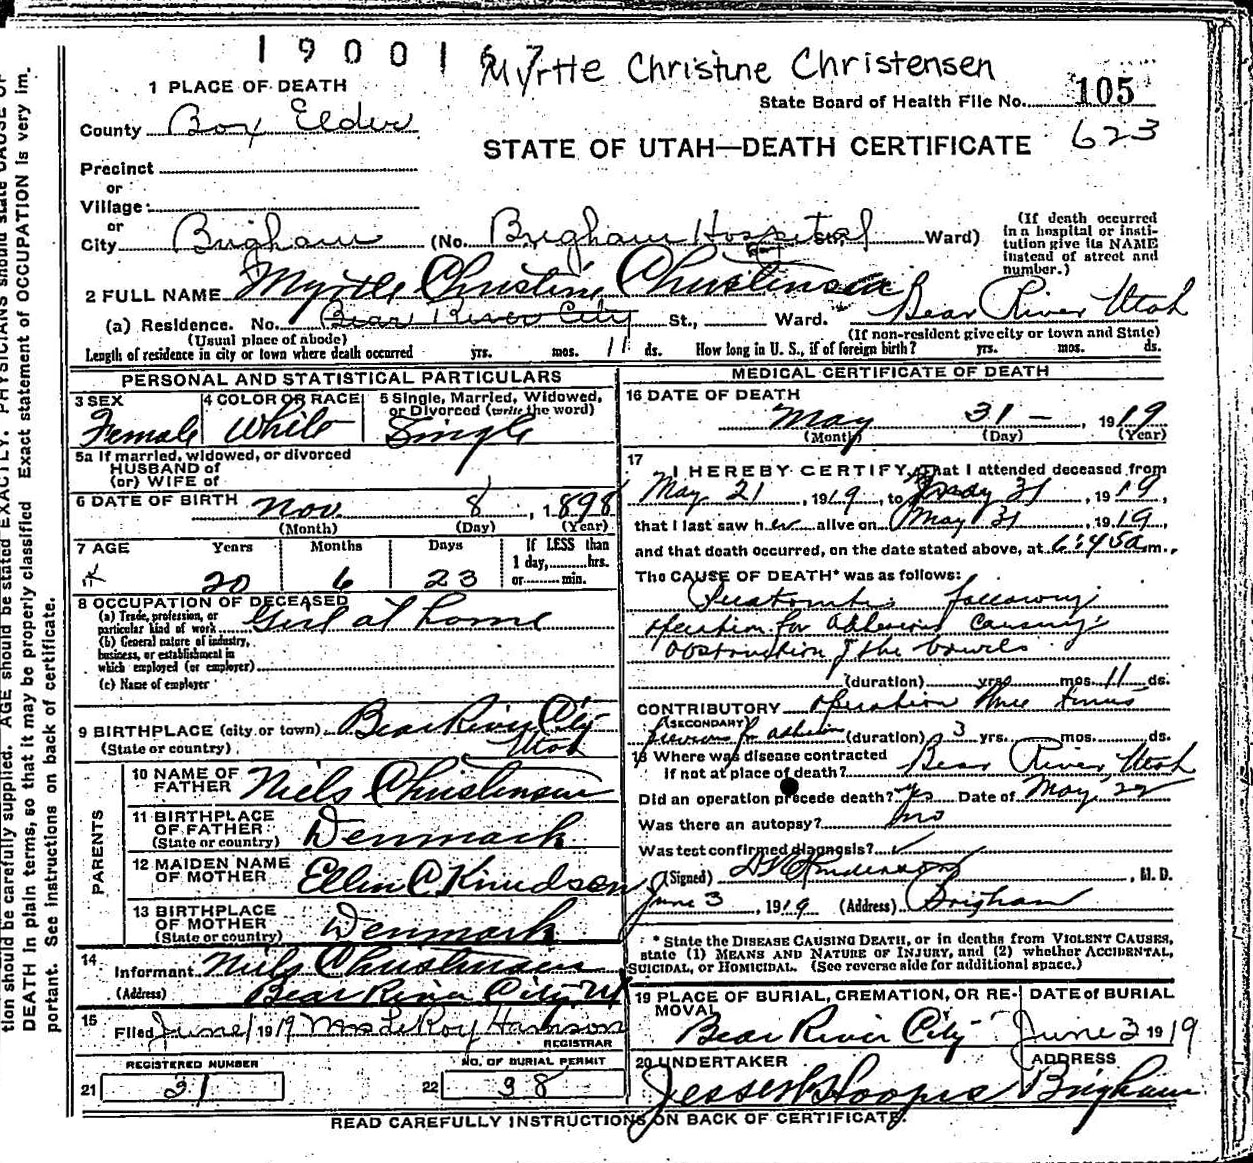 1900167
Myrtle Christine Christensen
State Board of Health File No. 105
623
STATE OF UTAH—DEATH CERTIFICATE
1 PLACE OF DEATH
County Box Elder
Precinct
or
Village
or
City Brigham (No. Brigham Hospital St., Ward)
(If death occurred in a hospital or insti-
tution give its NAME
instead of street and
number.)
2 FULL NAME Myrtle Christine Christensen
(a) Residence. No. Bear River City St., Ward. Bear River Utah
(Usual place of abode) (If non-resident give city or town and State)
Length of residence in city or town where death occurred yrs. mos. 11 ds. How long in U. S., if of foreign birth? yrs. mos. ds.
PERSONAL AND STATISTICAL PARTICULARS
3 SEX Female
4 COLOR OR RACE White
5 Single, Married, Widowed,
or Divorced (write the word)
Single
5a If married, widowed, or divorced
HUSBAND of
(or) WIFE of
6 DATE OF BIRTH Nov. 8, 1898
(Month) (Day) (Year)
7 AGE Years Months Days If LESS than
1 day, hrs.
or min.
20 6 23
8 OCCUPATION OF DECEASED
(a) Trade, profession, or
particular kind of work Girl at home
(b) General nature of industry,
business, or establishment in
which employed (or employer)
(c) Name of employer
9 BIRTHPLACE (city or town) Bear River City
(State or country) Utah
PARENTS
10 NAME OF
FATHER Niels Christensen
11 BIRTHPLACE
OF FATHER
(State or country) Denmark
12 MAIDEN NAME
OF MOTHER Ellen C Knudson
13 BIRTHPLACE
OF MOTHER
(State or country) Denmark
14
Informant Nils Christensen
(Address) Bear River City Ut
15
Filed June 1 1919 Mrs LeRoy Hamson
REGISTRAR
REGISTERED NUMBER
21 31
NO. OF BURIAL PERMIT
22 98
MEDICAL CERTIFICATE OF DEATH
16 DATE OF DEATH
May 31 — , 1919
(Month) (Day) (Year)
17
I HEREBY CERTIFY, That I attended deceased from
May 21, 1919, to May 31, 1919,
that I last saw her alive on May 31, 1919,
and that death occurred, on the date stated above, at 6:45a m.
The CAUSE OF DEATH* was as follows:
following
operation for adhesions causing
obstruction of the bowels
(duration) yrs mos. 11 ds.
CONTRIBUTORY operation three times
(SECONDARY)
previous for adhesion (duration) 3 yrs. mos. ds.
18 Where was disease contracted
if not at place of death? Bear River, Utah
Did an operation precede death? Yes Date of May 22
Was there an autopsy? no
Was test confirmed diagnosis?
(Signed) , M. D.
June 3, 1919 (Address) Brigham
* State the DISEASE CAUSING DEATH, or in deaths from VIOLENT CAUSES,
state (1) MEANS AND NATURE OF INJURY, and (2) whether ACCIDENTAL,
SUICIDAL, OR HOMICIDAL. (See reverse side for additional space.)
19 PLACE OF BURIAL, CREMATION, OR RE-
MOVAL
Bear River City
DATE of BURIAL
June 3 1919
20 UNDERTAKER
Jesse W Hoopes
ADDRESS
Brigham
READ CAREFULLY INSTRUCTIONS ON BACK OF CERTIFICATE.
tion should be carefully supplied. AGE should be stated EXACTLY. PHYSICIANS should state CAUSE OF
DEATH in plain terms, so that it may be properly classified. Exact statement of OCCUPATION is very im-
portant. See instructions on back of certificate.